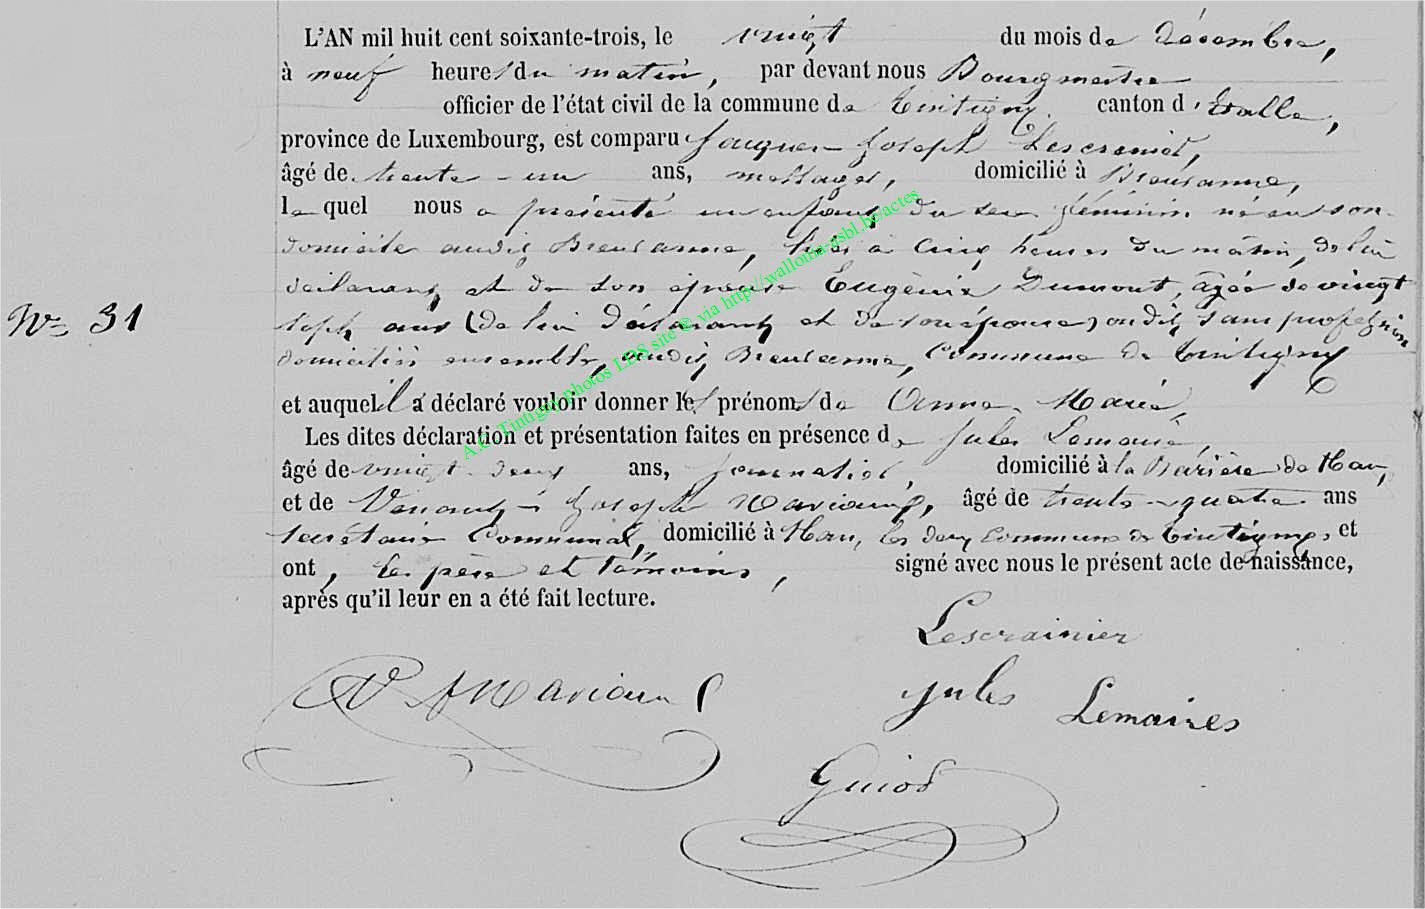 L'AN mil huit cent soixante-trois, le vingt du mois de décembre,
à neuf heures du matin, par devant nous Bourgmestre
officier de l'état civil de la commune de Tintigny canton d'Etalle,
province de Luxembourg, est comparu Jacques Joseph
âgé de trente-un ans, messager, domicilié à Breuvanne,
le quel nous a présenté un enfant du sexe féminin né en son
domicile audit Breuvanne, hier à cinq heures du matin, de lui
déclarant et de son épouse Eugénie Dumont, âgée de vingt
sept ans (de lui déclarant et de son épouse) sans profession
domiciliés ensemble, audit Breuvanne, Commune de Tintigny
N° 31
et auquel il a déclaré vouloir donner les prénoms de Anna Maria,
Les dites déclaration et présentation faites en présence de Jules Lemaire,
âgé de vingt-deux ans, journalier, domicilié à la Barière de Han,
et de Venant-Joseph âgé de trente-quatre ans
secrétaire Communal, domicilié à Han, les deux Commune de Tintigny, et
ont, les père et témoins, signé avec nous le présent acte de naissance,
après qu'il leur en a été fait lecture.
Lescrainier
Jules Lemaires
Guiod
A.C. Tintigny photos LDS site © via http://wallonia-asbl.be/actes